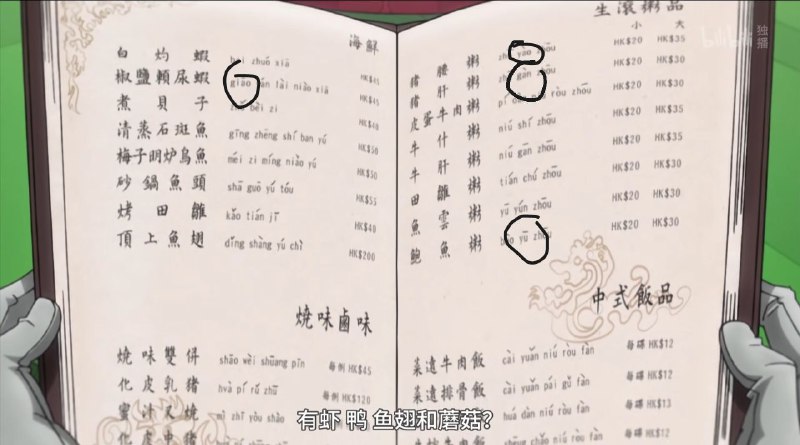 海鮮
白灼蝦 zhuó xiā HK$45
椒鹽賴尿蝦 jiāo lài niào xiā HK$45
煮貝子 bèi zi HK$40
清蒸石斑魚 gīng zhēng shí ban yú HK$50
梅子明炉烏魚 méi zi míng niǎo yú HK$50
砂鍋魚頭 shā guō yú tóu HK$55
烤田雞 kǎo tián jī HK$40
頂上魚翅 dǐng shàng yú chì HK$200
燒味鹵味
燒味雙併 shāo wèi shuāng pīn 每例 HK$45
化皮乳豬 huà pí rǔ zhū 每例 HK$120
蜜汁叉燒 mì zhī
生滾粥品
小 大
豬腰粥 yāo zhōu HK$20 HK$35
豬肝粥 gān zhōu HK$20 HK$30
皮蛋牛肉粥 pí ròu zhōu HK$20 HK$30
牛什粥 niú shí zhōu HK$20 HK$35
牛肝粥 niú gān zhōu HK$20 HK$30
田雞粥 tián zhōu HK$20 HK$35
魚雲粥 yū yún zhōu HK$20 HK$30
鮑魚粥 yū HK$20 HK$30
中式飯品
菜遠牛肉飯 cài yuǎn niú ròu fàn 每碟 HK$12
菜遠排骨飯 cài yuǎn pái gǔ fàn 每碟 HK$12
huá dàn niú ròu fàn 每碟 HK$12
bilibili 独播
有虾 鸭 鱼翅和蘑菇?